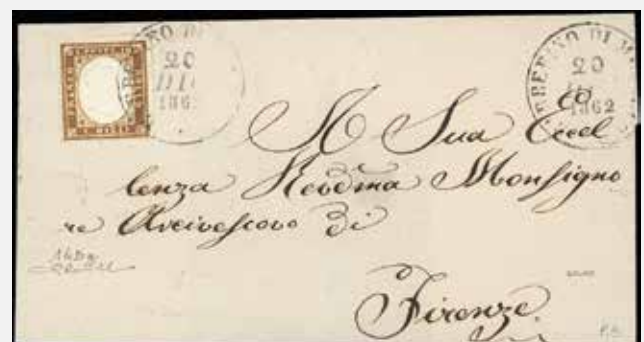 20
DIC
1862
BERINO DI M
20
1862
A Sua Eccel
lenza Revdma Monsigno
re Arcivescovo Di
Firenze.